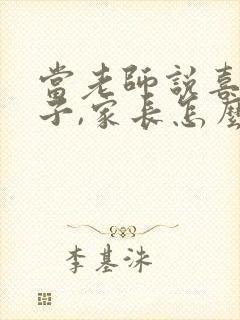 當老師説喜
子，家長怎麼
李基洙